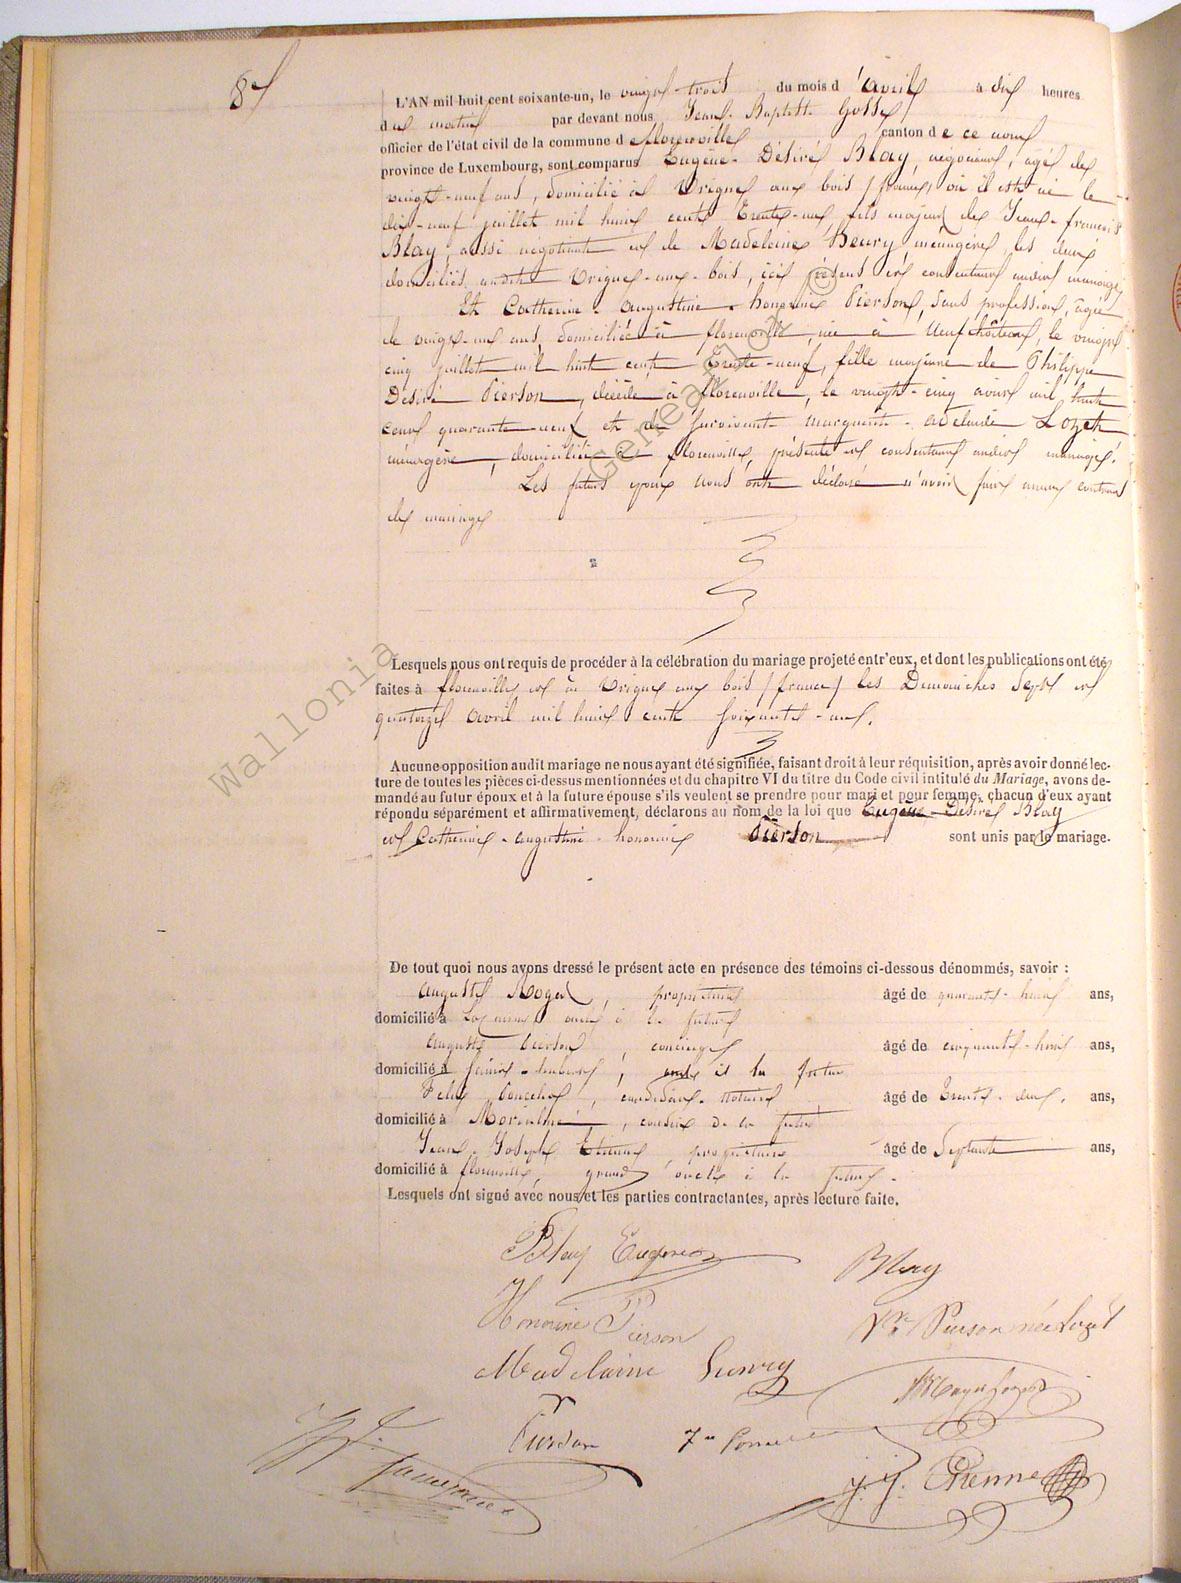 87
L'AN mil-huit cent soixante-un, le vingt trois du mois d'avril à dix heures
du matin par devant nous Jean-Baptiste Gosse
officier de l'état civil de la commune de florenville canton de ce nom
province de Luxembourg, sont comparus Eugène-Désiré Blay, négociant, âgé de
vingt-neuf ans, domicilié à Vrigne aux bois /france/ où il est né le
dix-neuf juillet mil huit cent trente-un fils majeur de Jean-françois
Blay, aussi négotiant et de Madeleine Henry ménagère, les deux
domiciliés audit Vrigne-aux-bois, ici présens et consentans audit mariage
Et Catherine-augustine-honorine Pierson, sans profession, âgée
de vingt-un ans, domiciliée à florenville, née à Neufchâteau, le vingt
cinq juillet mil huit cent trente-neuf, fille majeure de Philippe
Désiré Pierson, décédé à florenville, le vingt-cinq avril mil huit
cent quarante-neuf et de survivante marguerite-adelaïde Lozet
ménagère, domiciliée à florenville, présente et consentante audit mariage.
Les futurs époux nous ont déclaré n'avoir fait aucun contrat
de mariage
Lesquels nous ont requis de procéder à la célébration du mariage projeté entr'eux, et dont les publications ont été
faites à florenville et à Vrigne aux bois /france/ les Dimanches Sept et
quatorze avril mil huit cent soixante-un.
Aucune opposition audit mariage ne nous ayant été signifiée, faisant droit à leur réquisition, après avoir donné lec-
ture de toutes les pièces ci-dessus mentionnées et du chapitre VI du titre du Code civil intitulé du Mariage, avons de-
mandé au futur époux et à la future épouse s'ils veulent se prendre pour mari et pour femme, chacun d'eux ayant
répondu séparément et affirmativement, déclarons au nom de la loi que Eugène-Désiré Blay
et Catherine-augustine-honorine Pierson sont unis par le mariage.
De tout quoi nous avons dressé le présent acte en présence des témoins ci-dessous dénommés, savoir :
auguste , propriétaire âgé de quarante-huit ans,
domicilié à à la future
auguste Pierson, concierge âgé de cinquante-huit ans,
domicilié à Saint-hubert, oncle à la future
Felix , candidat-notaire âgé de trente-deux ans,
domicilié à , cousin de la future
Jean-Joseph Etienne, propriétaire âgé de Septante ans,
domicilié à florenville, grand oncle à la future.
Lesquels ont signé avec nous et les parties contractantes, après lecture faite.
Blay Eugène Blay
Honorine Pierson Vve Pierson née Lozet
Madelaine Henry
Pierson
J. J. Etienne
Wallonia Geneanet ©